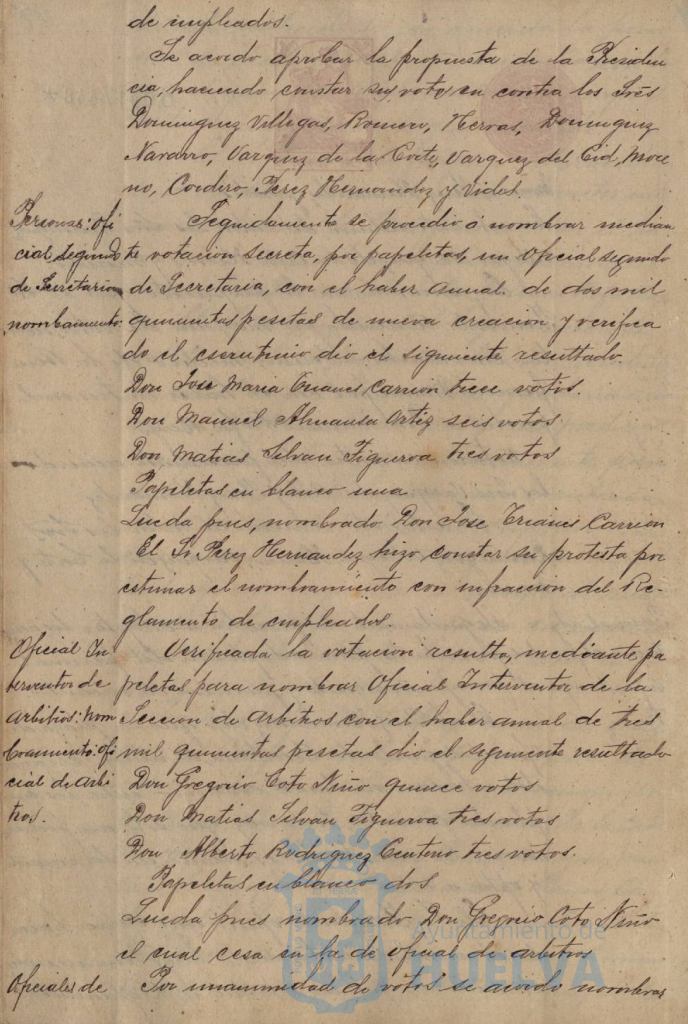 de empleados.
Se acordo aprobar la propuesta de la Presiden
cia, haciendo constar su voto en contra los Sres
Dominguez Villegas, Romero, Hervas, Dominguez
Navarro, Vazquez de la Corte, Vazquez del Cid, More
no, Cordero, Perez Hernandez y Vides.
Personal: ofi
cial segundo
de Secretaria
nombamiento.
Seguidamente se procedio a nombrar median
te votacion secreta, por papeletas, un oficial segundo
de Secretaria, con el haber anual de dos mil
quinientas pesetas de nueva creacion y verifica
do el escrutinio dio el siguiente resultado.
Don Jose Maria Trianes Carrion trece votos.
Don Manuel Almansa Ortiz seis votos
Don Matias Silvan Figueroa tres votos
Papeletas en blanco una
Queda pues, nombrado Don Jose Trianes Carrion
El Sr Perez Hernandez hizo constar su protesta por
estimar el nombramiento con infraccion del Re-
glamento de empleados.
Oficial In
terventor de
arbitrios: nom
bramiento: ofi
cial de arbi
trios.
Verificada la votacion resulto, mediante pa
peletas para nombrar Oficial Interventor de la
Seccion de arbitrios con el haber anual de tres
mil quinientas pesetas dio el siguiente resultado
Don Gregorio Coto Niño quince votos
Don Matias Silvan Figueroa tres votos
Don Alberto Rodriguez Centeno tres votos.
Papeletas en blanco dos
Queda pues nombrado Don Gregorio Coto Niño
el cual cesa en la de oficial de arbitros
Oficiales de
Por unanimidad de votos se acordo nombrar
Ayuntamiento de
HUELVA